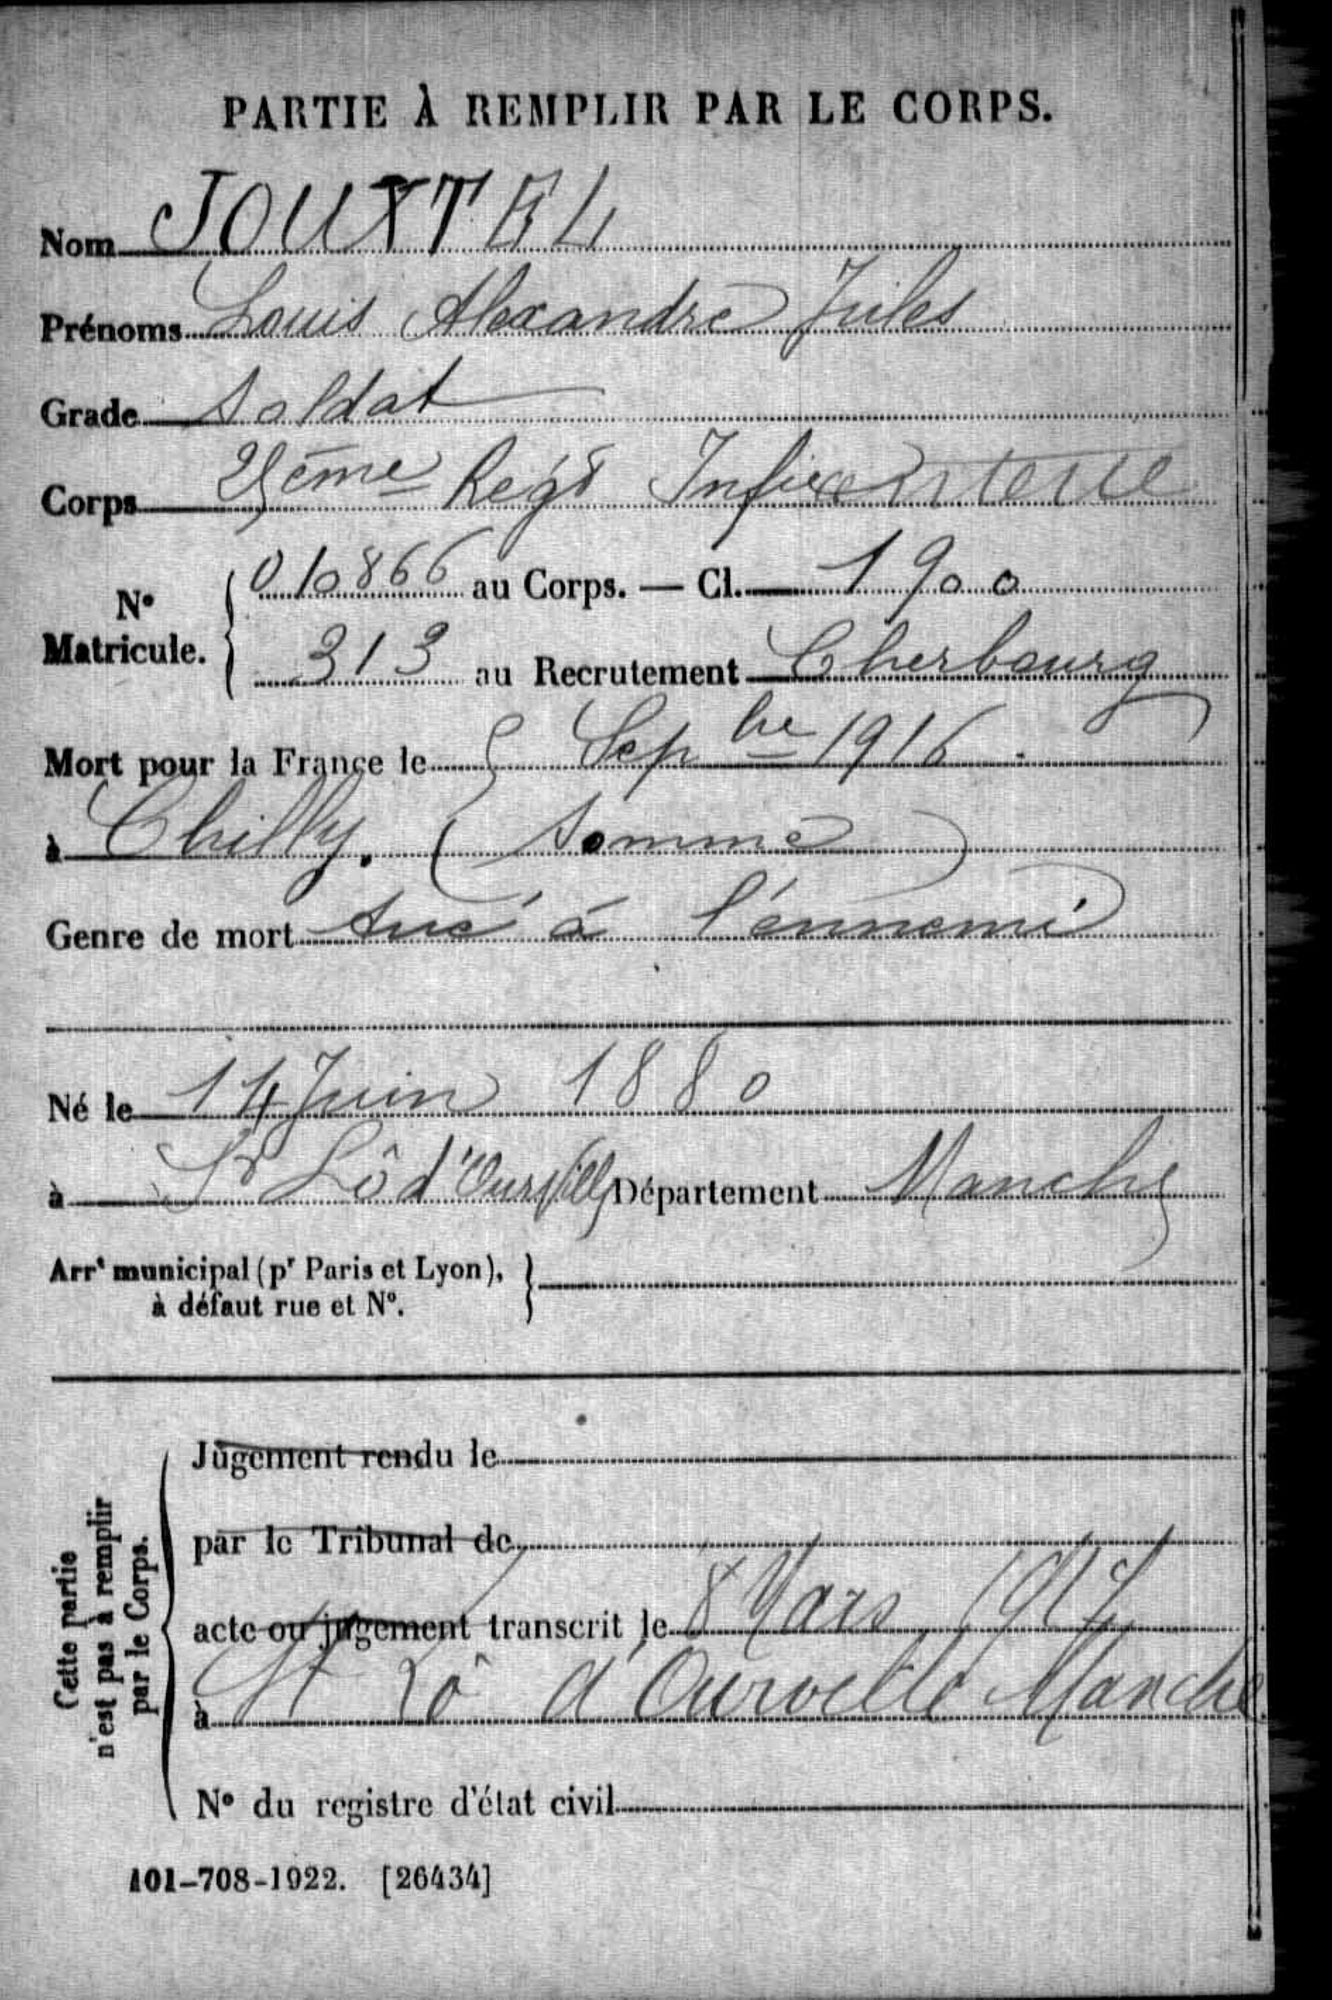 PARTIE À REMPLIR PAR LE CORPS.
Nom JOUXTEL
Prénoms Louis Alexandre Jules
Grade Soldat
Corps 25ème Régt Infanterie
N° Matricule. 010866 au Corps. — Cl. 1900
313 au Recrutement Cherbourg
Mort pour la France le 5 Sepbre 1916.
à Chilly. (Somme)
Genre de mort tué à l'ennemi
Né le 14 Juin 1880
à St Lô d'Ourville Département Manche
Arrt municipal (pr Paris et Lyon),
à défaut rue et N°.
Cette partie
n'est pas à remplir
par le Corps.
Jugement rendu le
par le Tribunal de
acte ou jugement transcrit le 8 Mars 1917
à St Lô d'Ourville Manche
N° du registre d'état civil
101-708-1922. [26434]